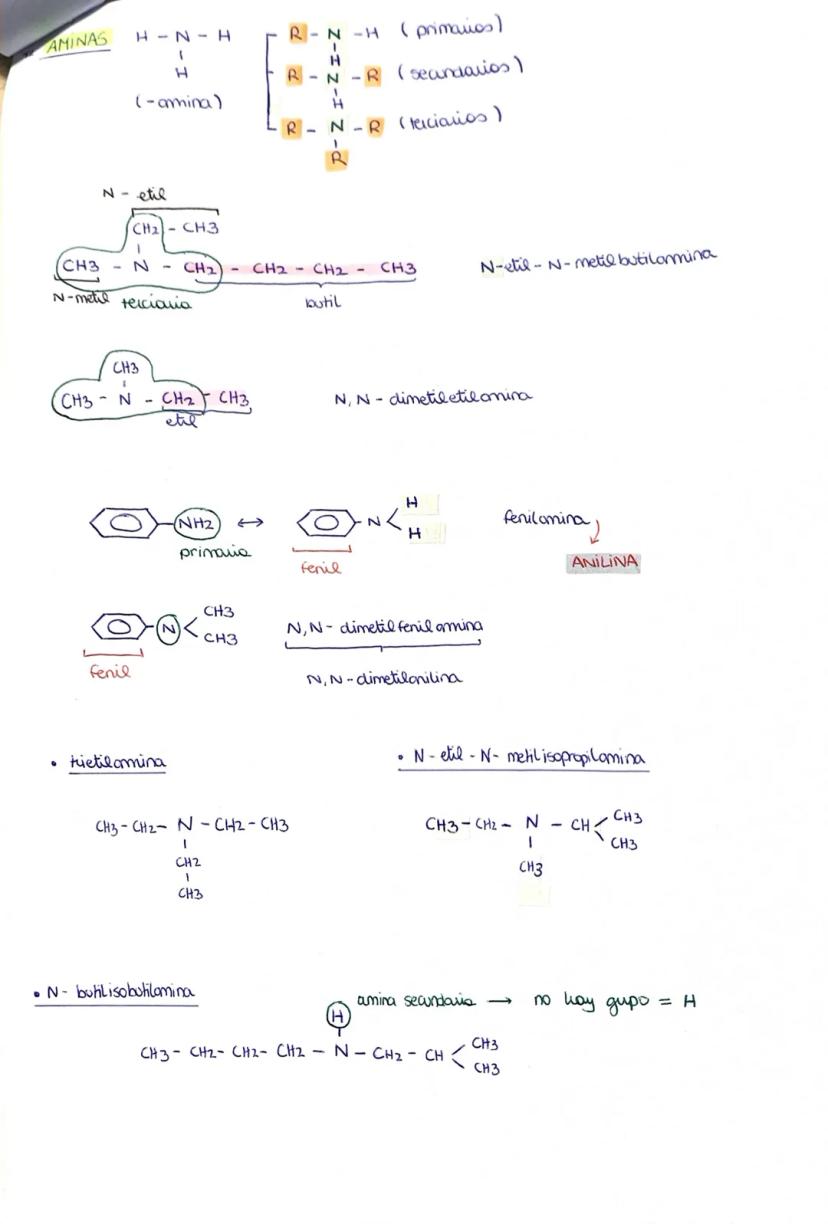 AMINAS H - N - H R - N - H (primarios)
H H
(-amina) R - N - R (secundarios)
H
R - N - R (terciarios)
R
N - etil
CH2 - CH3
CH3 - N - CH2 - CH2 - CH2 - CH3 N-etil-N-metilbutilamina
N-metil terciaria butil
CH3
CH3 - N - CH2 - CH3 N,N-dimetiletilamina
etil
H
NH2 ↔ N fenilamina
H
primaria fenil ANILINA
CH3
N N,N-dimetilfenilamina
CH3
fenil N,N-dimetilanilina
• trietilamina • N-etil-N-metilisopropilamina
CH3 - CH2 - N - CH2 - CH3 CH3 - CH2 - N - CH CH3
CH3
CH2 CH3
CH3
• N-butilisobutilamina
H amina secundaria → no hay grupo = H
CH3 - CH2 - CH2 - CH2 - N - CH2 - CH CH3
CH3